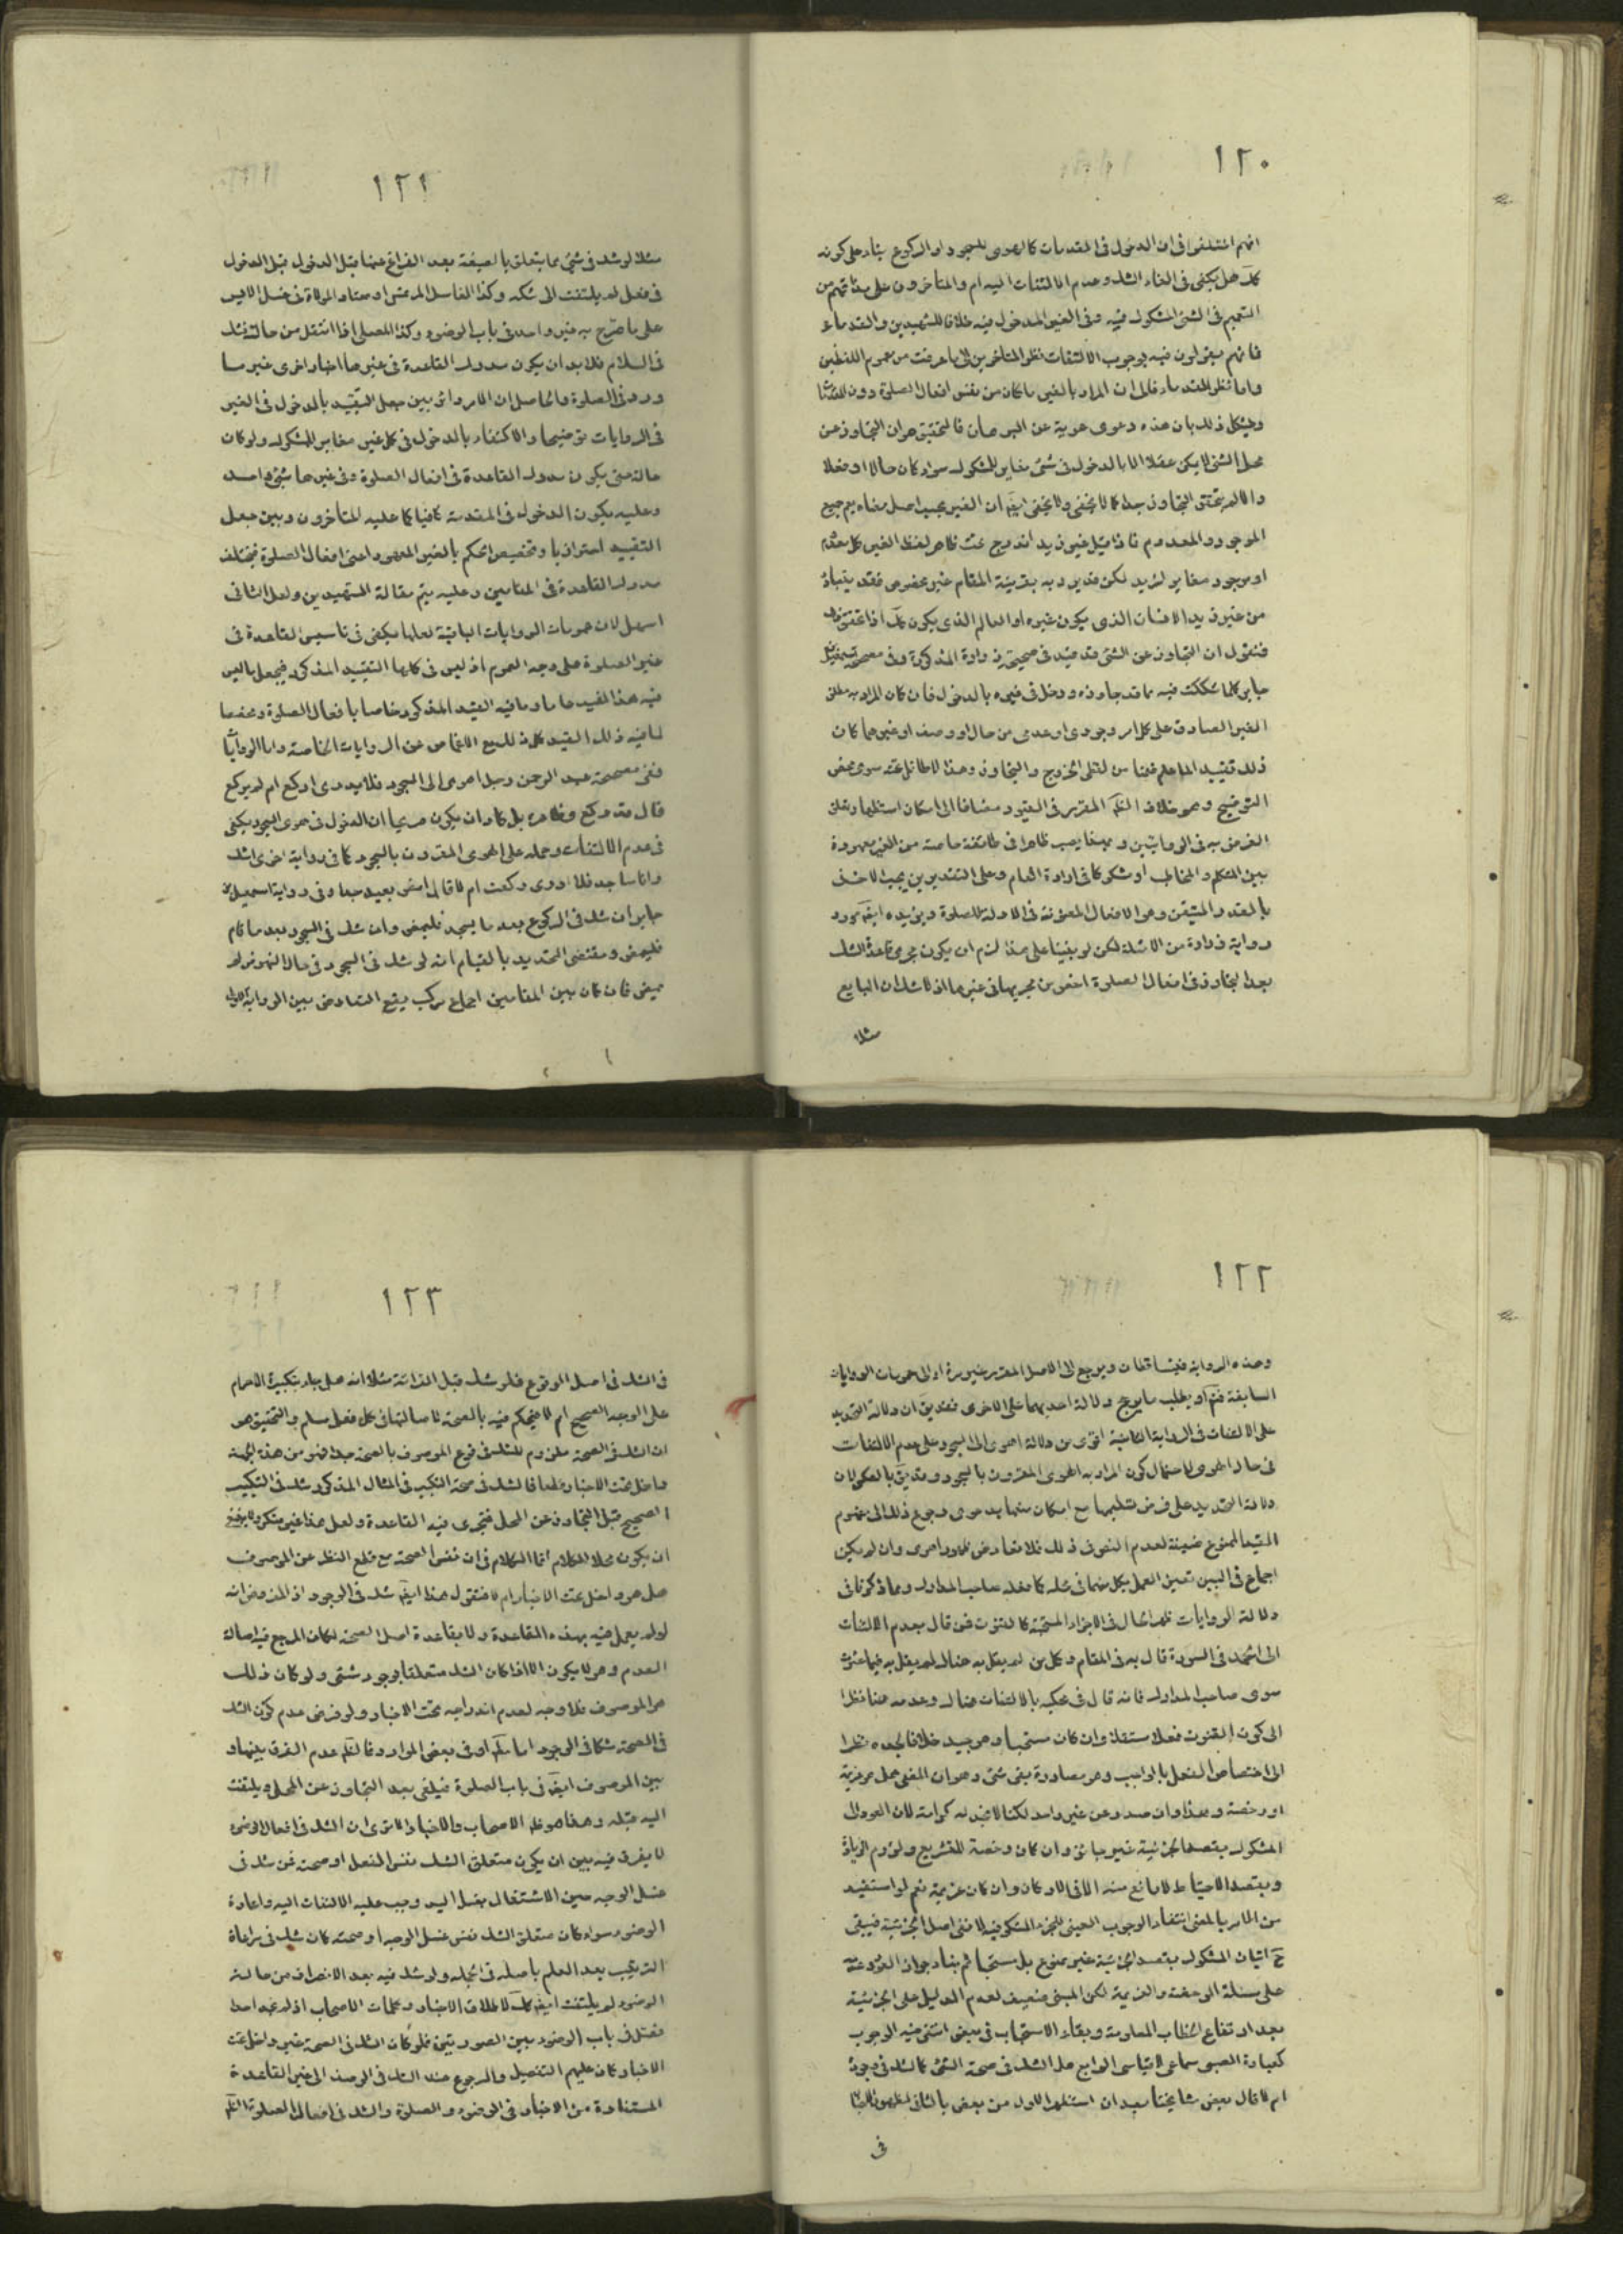 ١٢٠
انهم اختلفوا فى ان الدخول فى المقدمات كالهوى للسجود او الركوع بناء على كونه
كك هل يكفى فى الغاء الشك وعدم الالتفات اليه ام لا والمتأخرون على
التعميم فى الشئ المشكوك فيه وفى الغير المدخول فيه خلافا للشهيدين والقدماء
فانهم يقولون فيه بوجوب الالتفات نظر المتأخرين الى ما عرفت من عموم اللفظين
واما نظر القدماء فالى ان المراد بالغير ما كان من نفس افعال الصلوة دون
ويشكل ذلك بان هذه دعوى عرية عن البرهان فالتحقيق هو ان التجاوز عن
محل الشئ لا يمكن عقلا الا بالدخول فى شئ مغاير للمشكوك سواء كان حالا او فعلا
والا لم يتحقق التجاوز جدا كما لا يخفى ولا يخفى ايضا ان الغير بحسب اصل معناه يعم جميع
الموجود والمعدوم فاذا قيل غير زيد اندرج تحت ظاهر لفظ الغير كل معدوم
او موجود مغاير لزيد لكن قد يرد به بقرينة المقام غير مخصوص فقد يتبادر
من غير زيد الانسان الذى يكون غيره او العالم الذى يكون كك اذا
فنقول ان التجاوز عن الشئ قد قيد فى صحيحة زرارة المذكورة وفى مصححة اسمعيل
جابر كلما شككت فيه مما قد جاوزه ودخل فى غيره بالدخول فان كان المراد به مطلق
الغير الصادق على كل امر وجودى او عدمى من حال او وصف او غيرهما كان
ذلك تقييد الما علم ضمنا من لفظى الخروج والتجاوز وهذا لا طائل تحته سوى محض
التوضيح وهو خلاف الظاهر المقرر فى القيود مضافا الى امكان استظهار تعلق
الغرض به فى الروايتين و يصير ظاهرا فى طائفة خاصة من الغير معهودة
بين المتكلم والمخاطب او مشكوكا فى ارادة العام وعلى التقديرين يجب الاخذ
بالمقدر المتيقن وهو الافعال المعنونة فى الادلة للصلوة ويؤيده ايضا مورد
رواية زرارة من الاسئلة لكن لو بنينا على هذا لزم ان يكون مجرى قاعدة الشك
بعد التجاوز فى افعال الصلوة اخص من مجريها فى غيرها اذ لا شك ان البايع
مثلا
١٢١
مثلا لو شك فى شئ مما يتعلق بالصيغة بعد الفراغ عنها قبل الدخول
فى فعل لم يلتفت الى شكه وكذا الغاسل المرتمس او معتاد الموالاة فى غسل الايسر
على ما صرّح به غير واحد فى باب الوضوء وكذا المصلى اذا انتقل من حالته فشك
فى السلام فلا بد ان يكون مدرك القاعدة فى غيرها اخبار اخرى غير ما
ورد فى الصلوة والحاصل ان الامر دائر بين جعل التقييد بالدخول فى الغير
فى الروايات توضيحا والاكتفاء بالدخول فى كل غير مغاير للمشكوك ولو كان
حالة حتى يكون مدرك القاعدة فى افعال الصلوة وفى غيرها شئ واحد
وعليه يكون الدخول فى المقدمة كافيا كما عليه المتأخرون وبين جعل
التقييد احترازيا وتخصيص الحكم بالغير المعهود اعنى افعال الصلوة فيختلف
مدرك القاعدة فى المقامين وعليه يتم مقالة الشهيدين ولعل الثانى
اسهل لان عمومات الروايات الباقية لعلها يكفى فى تاسيس القاعدة فى
غير الصلوة على وجه العموم اذ ليس فى كلها التقييد المذكور فيجعل ما ليس
فيه هذا القيد عاما وما فيه القيد المذكور خاصا بافعال الصلوة ومخصصا
لما فيه ذلك القيد كل ذلك مع الاغماض عن الروايات الخاصة واما الروايات
ففى مصححة عبد الرحمن رجل اهوى الى السجود فلا يدرى اركع ام لم يركع
قال قد ركع وظاهره بل كاد ان يكون صريحا ان الدخول فى هوى السجود يكفى
فى عدم الالتفات وحمله على الهوى المقرون بالسجود كما فى رواية اخرى اشك
وانا ساجد فلا ادرى ركعت ام لا قال امض بعيد جدا وفى رواية اسمعيل بن
جابر ان شك فى الركوع بعد ما يسجد فليمض وان شك فى السجود بعد ما قام
فليمض ومقتضى التحديد بالقيام انه لو شك فى السجود فى حال النهوض لم
يمض فان كان بين المقامين اجماع مركب يقع التعارض بين الرواية الاولى
١٢٢
وهذه الرواية فيتساقطان ويرجع الى الاصل المقرر او الى عمومات الروايات
السابقة فتم او يطلب ما يرجح دلالة احديهما على الاخرى فقد يق ان دلالة التحديد
على الالتفات فى الرواية الثانية اقوى من دلالة اهوى الى السجود على عدم الالتفات
فى حال الهوى لاحتمال كون المراد به الهوى المقرون بالسجود وقد يق بالعكس لان
دلالة التحديد على فرض تسليمها مع امكان منعها بدعوى رجوع ذلك الى مفهوم
القيد الممنوع ضمنية لعدم النص فى ذلك فلا تعارض ظهور اهوى وان لم يكن
اجماع فى البين تعين العمل بكل منهما فى محله كما فعله صاحب المدارك ومما ذكرنا فى
دلالة الروايات ظهر الحال فى الاجزاء المستحبة كالقنوت فمن قال بعدم الالتفات
الى الحمد فى السورة قال به فى المقام وكل من لم يقل به هناك لم يقل به فيما عثرت
سوى صاحب المدارك فانه قال فى محكيه بالالتفات هناك وعدمه هنا نظرا
الى كون القنوت فعلا مستقلا وان كان مستحبا وهو جيد خلافا لجده نظرا
الى اختصاص الفعل بالواجب وهو مصادرة بقى شئ وهو ان المضى هل هو عزيمة
او رخصة وهذا وان صدر عن غير واحد لكنا لا نجد له كرامة لان العود الى
المشكوك بقصد الجزئية غير جائز وان كان رخصة للتشريع ولزوم الزيادة
وبقصد الاحتياط لا مانع منه الا فى الاركان وان كان عزيمة نعم لو استفيد
من الامر بالمضى انتفاء الوجوب العينى للجزء المشكوك فيه لا نفى اصل الجزئية فيبقى
ح اتيان المشكوك بقصد الجزئية غير ممنوع بل مستحبا تم بناء جواز العود عنه
على مسئلة الرخصة والعزيمة لكن المبنى ضعيف لعدم الدليل على الجزئية
بعد ارتفاع الخطاب المعلومة وبقاء الاستحباب فى بعض انتفى فيه الوجوب
كعبادة الصبى سماعى لا قياسى الرابع هل الشك فى صحة الشئ كالشك فى وجوده
ام لا قال بعض مشايخنا بعد ان استظهر الاول من بعض بالثانى لظهور الاخبار
فى
١٢٣
فى الشك فى اصل الوقوع فلو شك قبل القرائة مثلا انه هل جاء بتكبيرة الاحرام
على الوجه الصحيح ام لا فيحكم فيه بالصحة لاصالتها فى كل فعل مسلم والتحقيق هو
ان الشك فى الصحة ملزوم للشك فى وقوع الموصوف بالصحة جدا فهو من هذه الجهة
داخل تحت الاخبار قطعا فالشك فى صحة التكبير فى المثال المذكور شك فى التكبير
الصحيح قبل التجاوز عن المحل فتجرى فيه القاعدة ولعل هذا غير منكر ولا ينبغى
ان يكون محلا للكلام انما الكلام فى ان نفس الصحة مع قطع النظر عن الموصوف
هل هو داخل تحت الاخبار ام لا فنقول هذا ايضا شك فى الوجود اذ المفروض انه
لو لم يعمل فيه بهذه القاعدة ولا بقاعدة اصل الصحة لكان المرجع فيه اصالة
العدم وهو لا يكون الا اذا كان الشك متعلقا بوجود شئ ولو كان ذلك
هو الموصوف فلا وجه لعدم اندراجه تحت الاخبار ولو فرض عدم كون الشك
فى الصحة شكا فى الوجود اما او فى بعض الموارد فالظاهر عدم الفرق بينها و
بين الموصوف ايضا فى باب الصلوة فيلغى بعد التجاوز عن المحل ويلتفت
اليه قبله وهذا هو ظاهر الاصحاب والاخبار الا ترى ان الشك فى افعال الوضوء
لا يفرق فيه بين ان يكون متعلق الشك نفس الفعل او صحته فمن شك فى
غسل الوجه حين الاشتغال بغسل اليد وجب عليه الالتفات اليه واعادة
الوضوء سواء كان متعلق الشك نفس غسل الوجه او صحته كان شك فى مراعاة
الترتيب بعد العلم باصله فى الجملة ولو شك فيه بعد الانصراف من حالة
الوضوء لم يلتفت ايضا كك لاطلاق الاخبار وكلمات الاصحاب اذ لم نجد احدا
فصل فى باب الوضوء بين الصورتين فلو كان الشك فى الصحة غير داخل تحت
الاخبار كان عليهم التفصيل والرجوع عند الشك فى الوصف الى غير القاعدة
المستفادة من الاخبار فى الوضوء والصلوة والشك فى افعال الصلوة